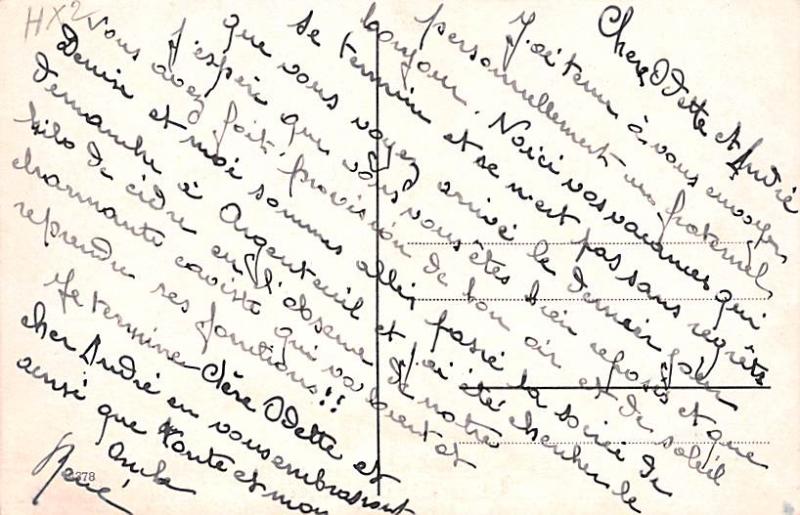 HX2
Chère Odette et André
J'ai tenu à vous envoyer
personnellement un fraternel
bonjour. Voici vos vacances qui
se termine et se n'est pas sans regrêts
que vous voyez arrivé le dernier jour
J'espère que vous vous êtes bien reposés et que
vous avez fait provision de bon air et de soleil
Denise et moi sommes allés passé la soirée de
Dimanche à Argenteuil et j'ai été chercher le
kilo de cidre en l'absence de notre
charmante caviste qui va bientôt
reprendre ses fonctions!!
Je termine Chère Odette et
cher André en vous embrassant
ainsi que Tante et mon
Oncle
René
378